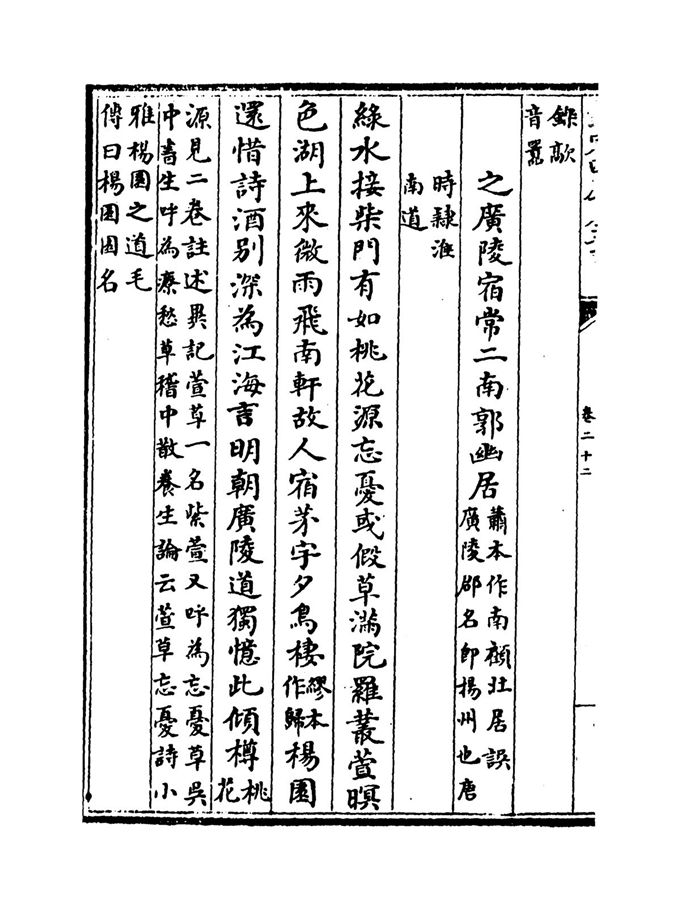 卷二十二
歊
音囂
之廣陵宿常二南郭幽居蕭本作南顧壯居誤
廣陵郡名即揚州也唐
時隸淮
南道
綠水接柴門有如桃花源忘憂或假草滿院羅叢萱暝
色湖上來微雨飛南軒故人宿茅宇夕鳥棲繆本作歸楊園
還惜詩酒别深為江海言明朝廣陵道獨憶此傾樽桃花
源見二卷註述異記萱草一名紫萱又呼為忘憂草吳
中書生呼為療愁草嵇中散養生論云萱草忘憂詩小
雅楊園之道毛
傳曰楊園園名